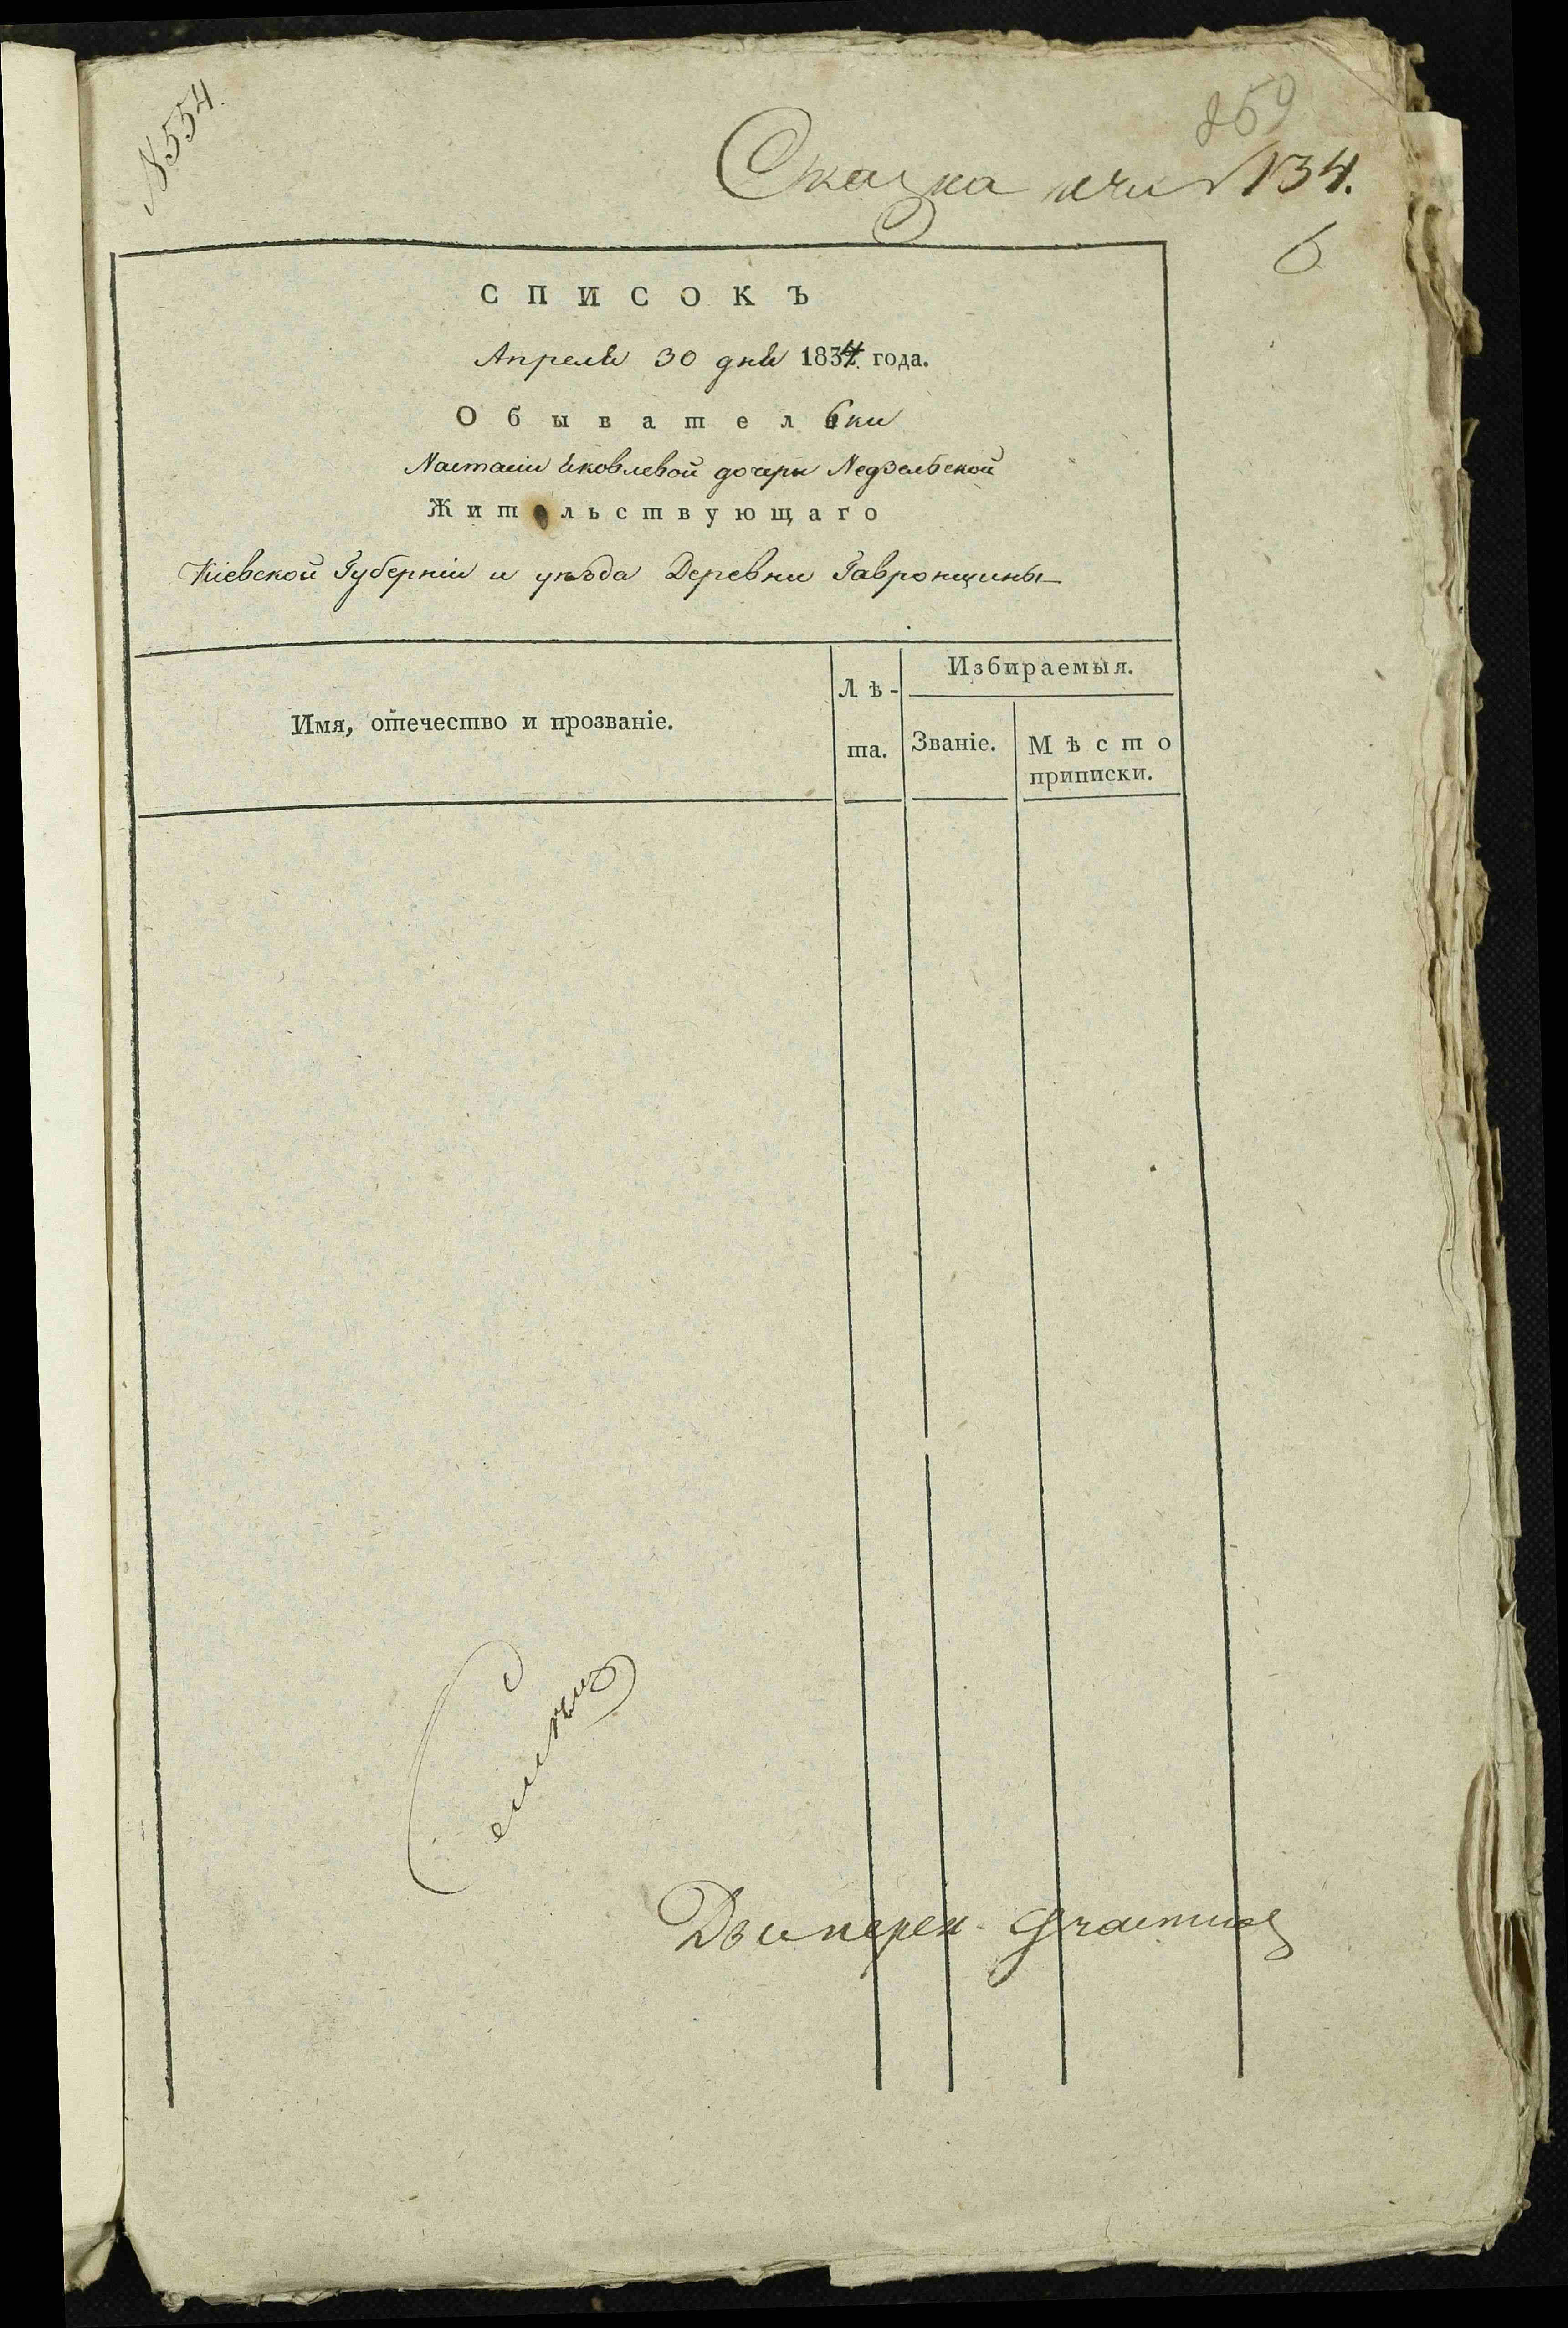 N 554.
859
Сказка N 134.
6
СПИСОКЪ
Апреля 30 дня 1834 года.
Обывательки
Настасіи Яковлевой дочери Недзельской
Жительствующаго
Кіевской Губерніи и уезда Деревни Гавронщины
Имя, отечество и прозваніе.
Лѣ-
та.
Избираемыя.
Званіе.
Мѣсто
приписки.